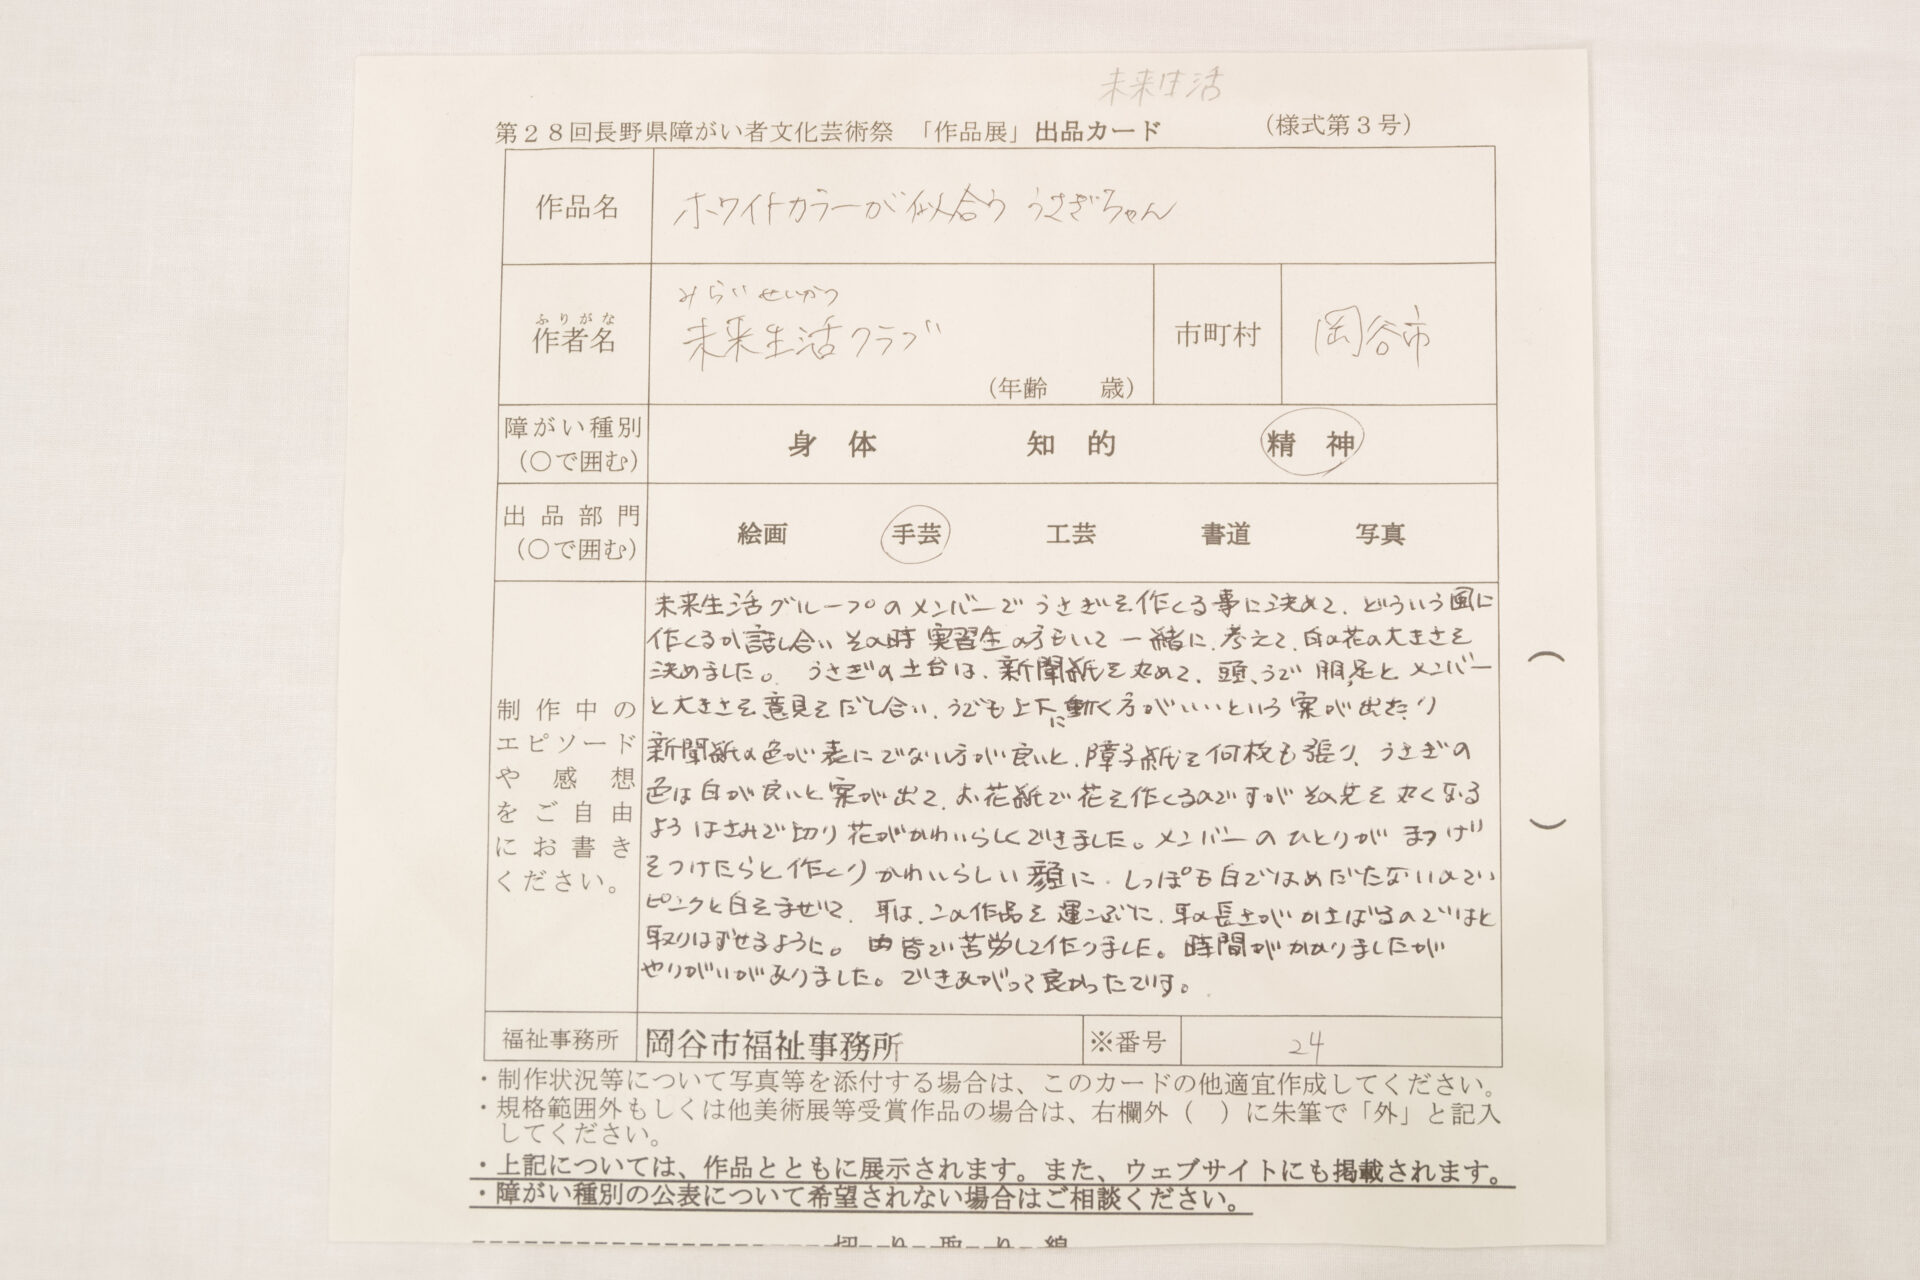 未来生活
第28回長野県障がい者文化芸術祭 「作品展」出品カード （様式第3号）
作品名 ホワイトカラーが似合ううさぎちゃん
みらいせいかつ
ふりがな
作者名 未来生活クラブ 市町村 岡谷市
（年齢　　歳）
障がい種別 身体 知的 精神
（○で囲む）
出品部門 絵画 手芸 工芸 書道 写真
（○で囲む）
制作中のエピソードや感想をご自由にお書きください。
未来生活グループのメンバーでうさぎを作くる事に決めて、どういう風に
作くるか話し合いその時実習生の方もいて一緒に、考えて、白の花の大きさを
決めました。うさぎの土台は、新聞紙を丸めて、頭、うで 胴、足とメンバー
と大きさを意見をだし合い、うでも上下に動く方がいいという案が出たり
新聞紙の色が表にでない方が良いと、障子紙を何枚も張り、うさぎの
色は白が良いと案が出て、お花紙で花を作くるのですがその先を丸くなる
ようはさみで切り花がかわいらしくできました。メンバーのひとりがまつげ
をつけたらと作くりかわいらしい顔に、しっぽも白ではめだたないので
ピンクと白をまぜて、耳は、この作品を運こぶに、耳の長さがかさばるのではと
取りはずせるように。皆で苦労して作りました。時間がかかりましたが
やりがいがありました。できあがって良かったです。
福祉事務所 岡谷市福祉事務所 ※番号 24
・制作状況等について写真等を添付する場合は、このカードの他適宜作成してください。
・規格範囲外もしくは他美術展等受賞作品の場合は、右欄外（　）に朱筆で「外」と記入
してください。
・上記については、作品とともに展示されます。また、ウェブサイトにも掲載されます。
・障がい種別の公表について希望されない場合はご相談ください。
切り取り線